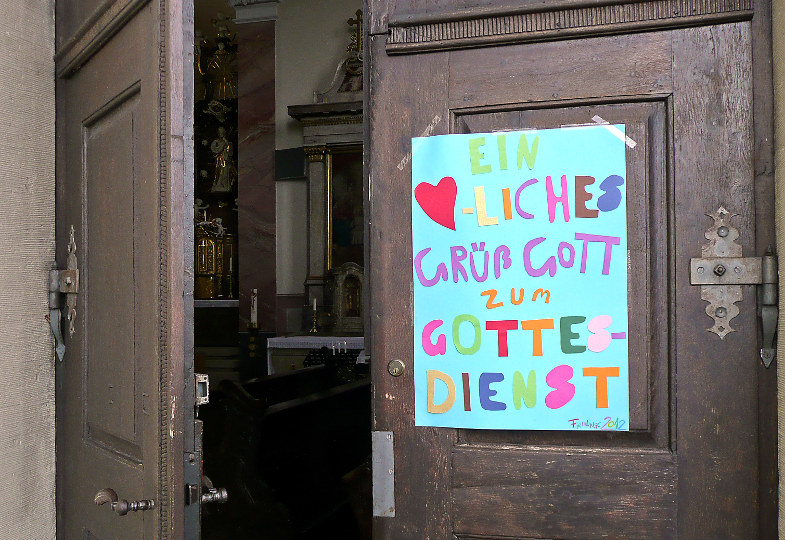 EIN
❤-LICHES
GRÜß GOTT
ZUM
GOTTES-
DIENST